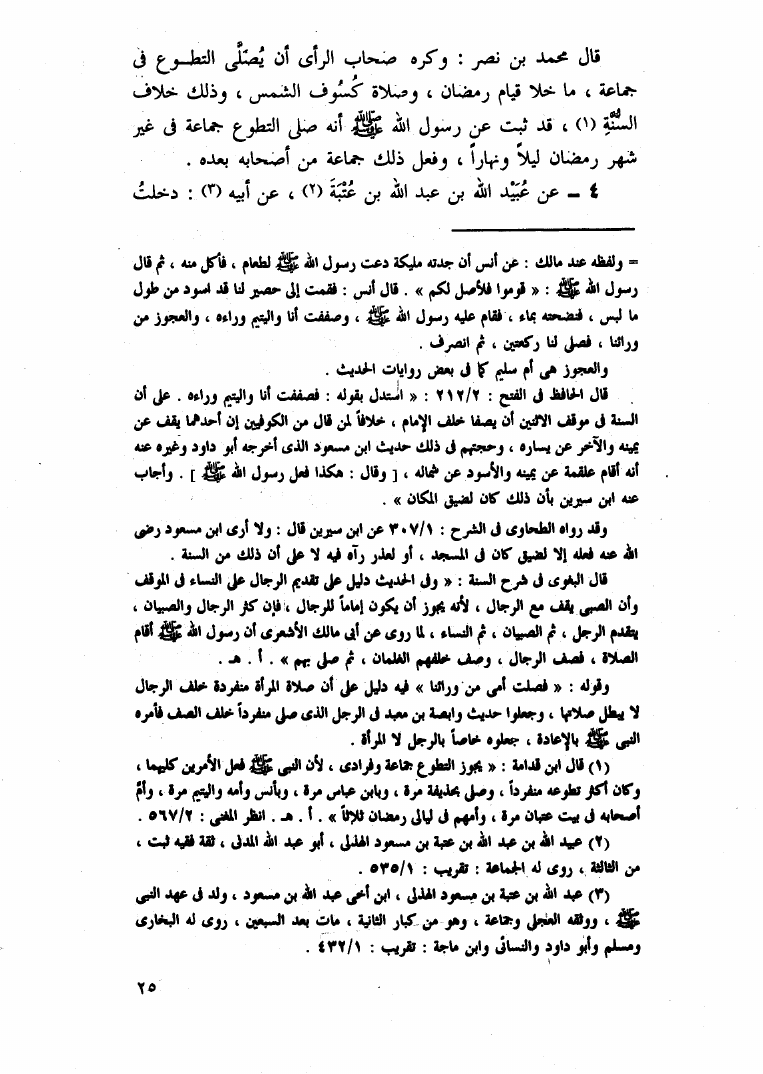 قال محمد بن نصر : وكره صحاب الرأى أن يُصَلَّى التطوع فى
جماعة ، ما خلا قيام رمضان ، وصلاة كسُوف الشمس ، وذلك خلاف
السُّنَّةِ (١) ، قد ثبت عن رسول الله ﷺ أنه صلى التطوع جماعة فى غير
شهر رمضان ليلاً ونهاراً ، وفعل ذلك جماعة من أصحابه بعده .
٤ – عن عُبَيْد الله بن عبد الله بن عُتْبَةَ (٢) ، عن أبيه (٣) : دخلتُ
= ولفظه عند مالك : عن أنس أن جدته مليكة دعت رسول الله ﷺ لطعام ، فأكل منه ، ثم قال
رسول الله ﷺ : « قوموا فلأصل لكم » . قال أنس : فقمت إلى حصير لنا قد اسود من طول
ما لبس ، فنضحته بماء ، فقام عليه رسول الله ﷺ ، وصففت أنا واليتيم وراءه ، والعجوز من
ورائنا ، فصلى لنا ركعتين ، ثم انصرف .
والعجوز هى أم سليم كما فى بعض روايات الحديث .
قال الحافظ فى الفتح : ٢١٢/٢ : « استدل بقوله : فصففت أنا واليتيم وراءه . على أن
السنة فى موقف الاثنين أن يصفا خلف الإمام ، خلافاً لمن قال من الكوفيين إن أحدهما يقف عن
يمينه والآخر عن يساره ، وحجتهم فى ذلك حديث ابن مسعود الذى أخرجه أبو داود وغيره عنه
أنه أقام علقمة عن يمينه والأسود عن شماله ، [ وقال : هكذا فعل رسول الله ﷺ ] . وأجاب
عنه ابن سيرين بأن ذلك كان لضيق المكان » .
وقد رواه الطحاوى فى الشرح : ٣٠٧/١ عن ابن سيرين قال : ولا أرى ابن مسعود رضى
الله عنه فعله إلا لضيق كان فى المسجد ، أو لعذر رآه فيه لا على أن ذلك من السنة .
قال البغوى فى شرح السنة : « وفى الحديث دليل على تقديم الرجال على النساء فى الموقف
وأن الصبى يقف مع الرجال ، لأنه يجوز أن يكون إماماً للرجال ، فإن كثر الرجال والصبيان ،
يتقدم الرجل ، ثم الصبيان ، ثم النساء ، لما روى عن أبى مالك الأشعرى أن رسول الله ﷺ أقام
الصلاة ، فصف الرجال ، وصف خلفهم الغلمان ، ثم صلى بهم » . أ . هـ .
وقوله : « فصلت أمى من ورائنا » فيه دليل على أن صلاة المرأة منفردة خلف الرجال
لا يبطل صلاتها ، وجعلوا حديث وابصة بن معبد فى الرجل الذى صلى منفرداً خلف الصف فأمره
النبى ﷺ بالإعادة ، جعلوه خاصاً بالرجل لا المرأة .
(١) قال ابن قدامة : « يجوز التطوع جماعة وفرادى ، لأن النبى ﷺ فعل الأمرين كليهما ،
وكان أكثر تطوعه منفرداً ، وصلى بحذيفة مرة ، وبابن عباس مرة ، وبأنس وأمه واليتيم مرة ، وأمّ
أصحابه فى بيت عتبان مرة ، وأمهم فى ليالى رمضان ثلاثاً » . أ . هـ . انظر المغنى : ٥٦٧/٢ .
(٢) عبيد الله بن عبد الله بن عتبة بن مسعود الهذلى ، أبو عبد الله المدنى ، ثقة فقيه ثبت ،
من الثالثة ، روى له الجماعة : تقريب : ٥٣٥/١ .
(٣) عبد الله بن عتبة بن مسعود الهذلى ، ابن أخى عبد الله بن مسعود ، ولد فى عهد النبى
ﷺ ، ووثقه العجلى وجماعة ، وهو من كبار الثانية ، مات بعد السبعين ، روى له البخارى
ومسلم وأبو داود والنسائى وابن ماجة : تقريب : ٤٣٢/١ .
٢٥